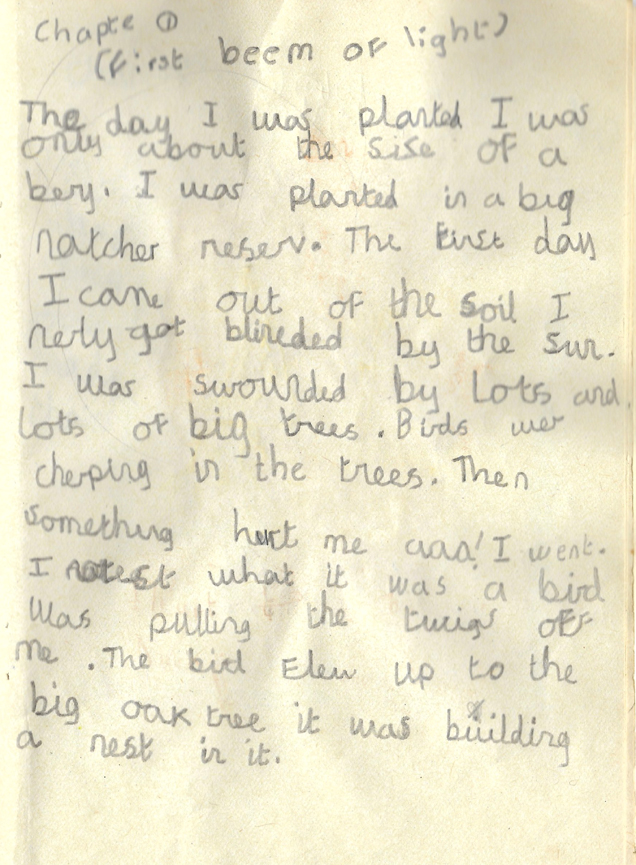 Chapte ①
(first beem of light)
The day I was planted I was
only about the sise of a
bery. I was planted in a big
natcher reserv. The first day
I came out of the soil I
nerly got blineded by the sun.
I was swounded by Lots and
Lots of big trees. Birds wer
cherping in the trees. Then
something hurt me aaa! I went.
I notest what it was a bird
Was pulling the twigs off
me. The bird flew up to the
big oak tree it was building
a nest in it.